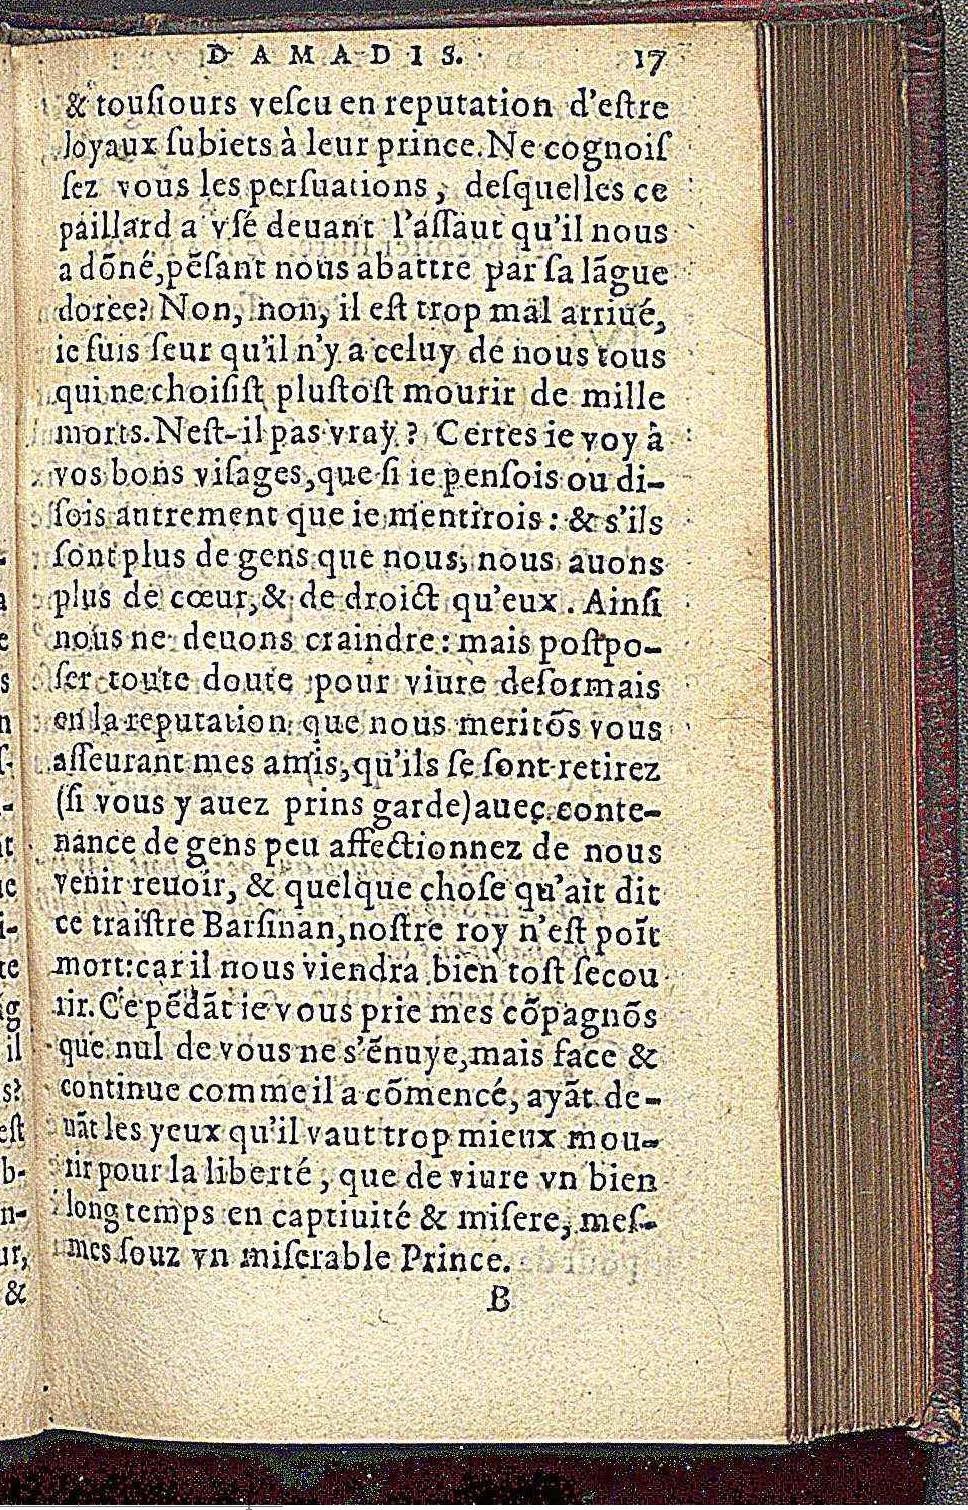 D'AMADIS. 17
& touſiours veſcu en reputation d'eſtre
loyaux ſubiets à leur prince. Ne cognoiſ
ſez vous les perſuations, deſquelles ce
paillard a vſé deuant l'aſſaut qu'il nous
a dõné, pẽſant nous abattre par ſa lãgue
doree? Non, non, il eſt trop mal arriué,
ie ſuis ſeur qu'il n'y a celuy de nous tous
qui ne choiſiſt pluſtoſt mourir de mille
morts. Neſt-il pas vray? Certes ie voy à
vos bons viſages, que ſi ie penſois ou di-
ſois autrement que ie mentirois: & s'ils
ſont plus de gens que nous, nous auons
plus de cœur, & de droict qu'eux. Ainſi
nous ne deuons craindre: mais poſtpo-
ſer toute doute pour viure deſormais
en la reputation que nous meritõs vous
aſſeurant mes amis, qu'ils ſe ſont retirez
(ſi vous y auez prins garde) auec conte-
nance de gens peu affectionnez de nous
venir reuoir, & quelque choſe qu'ait dit
ce traiſtre Barſinan, noſtre roy n'eſt poĩt
mort: car il nous viendra bien toſt ſecou
rir. Ce pẽdãt ie vous prie mes cõpagnõs
que nul de vous ne s'ẽnuye, mais face &
continue comme il a cõmencé, ayãt de-
uãt les yeux qu'il vaut trop mieux mou-
rir pour la liberté, que de viure vn bien
long temps en captiuité & miſere, meſ-
mes ſouz vn miſerable Prince.
B